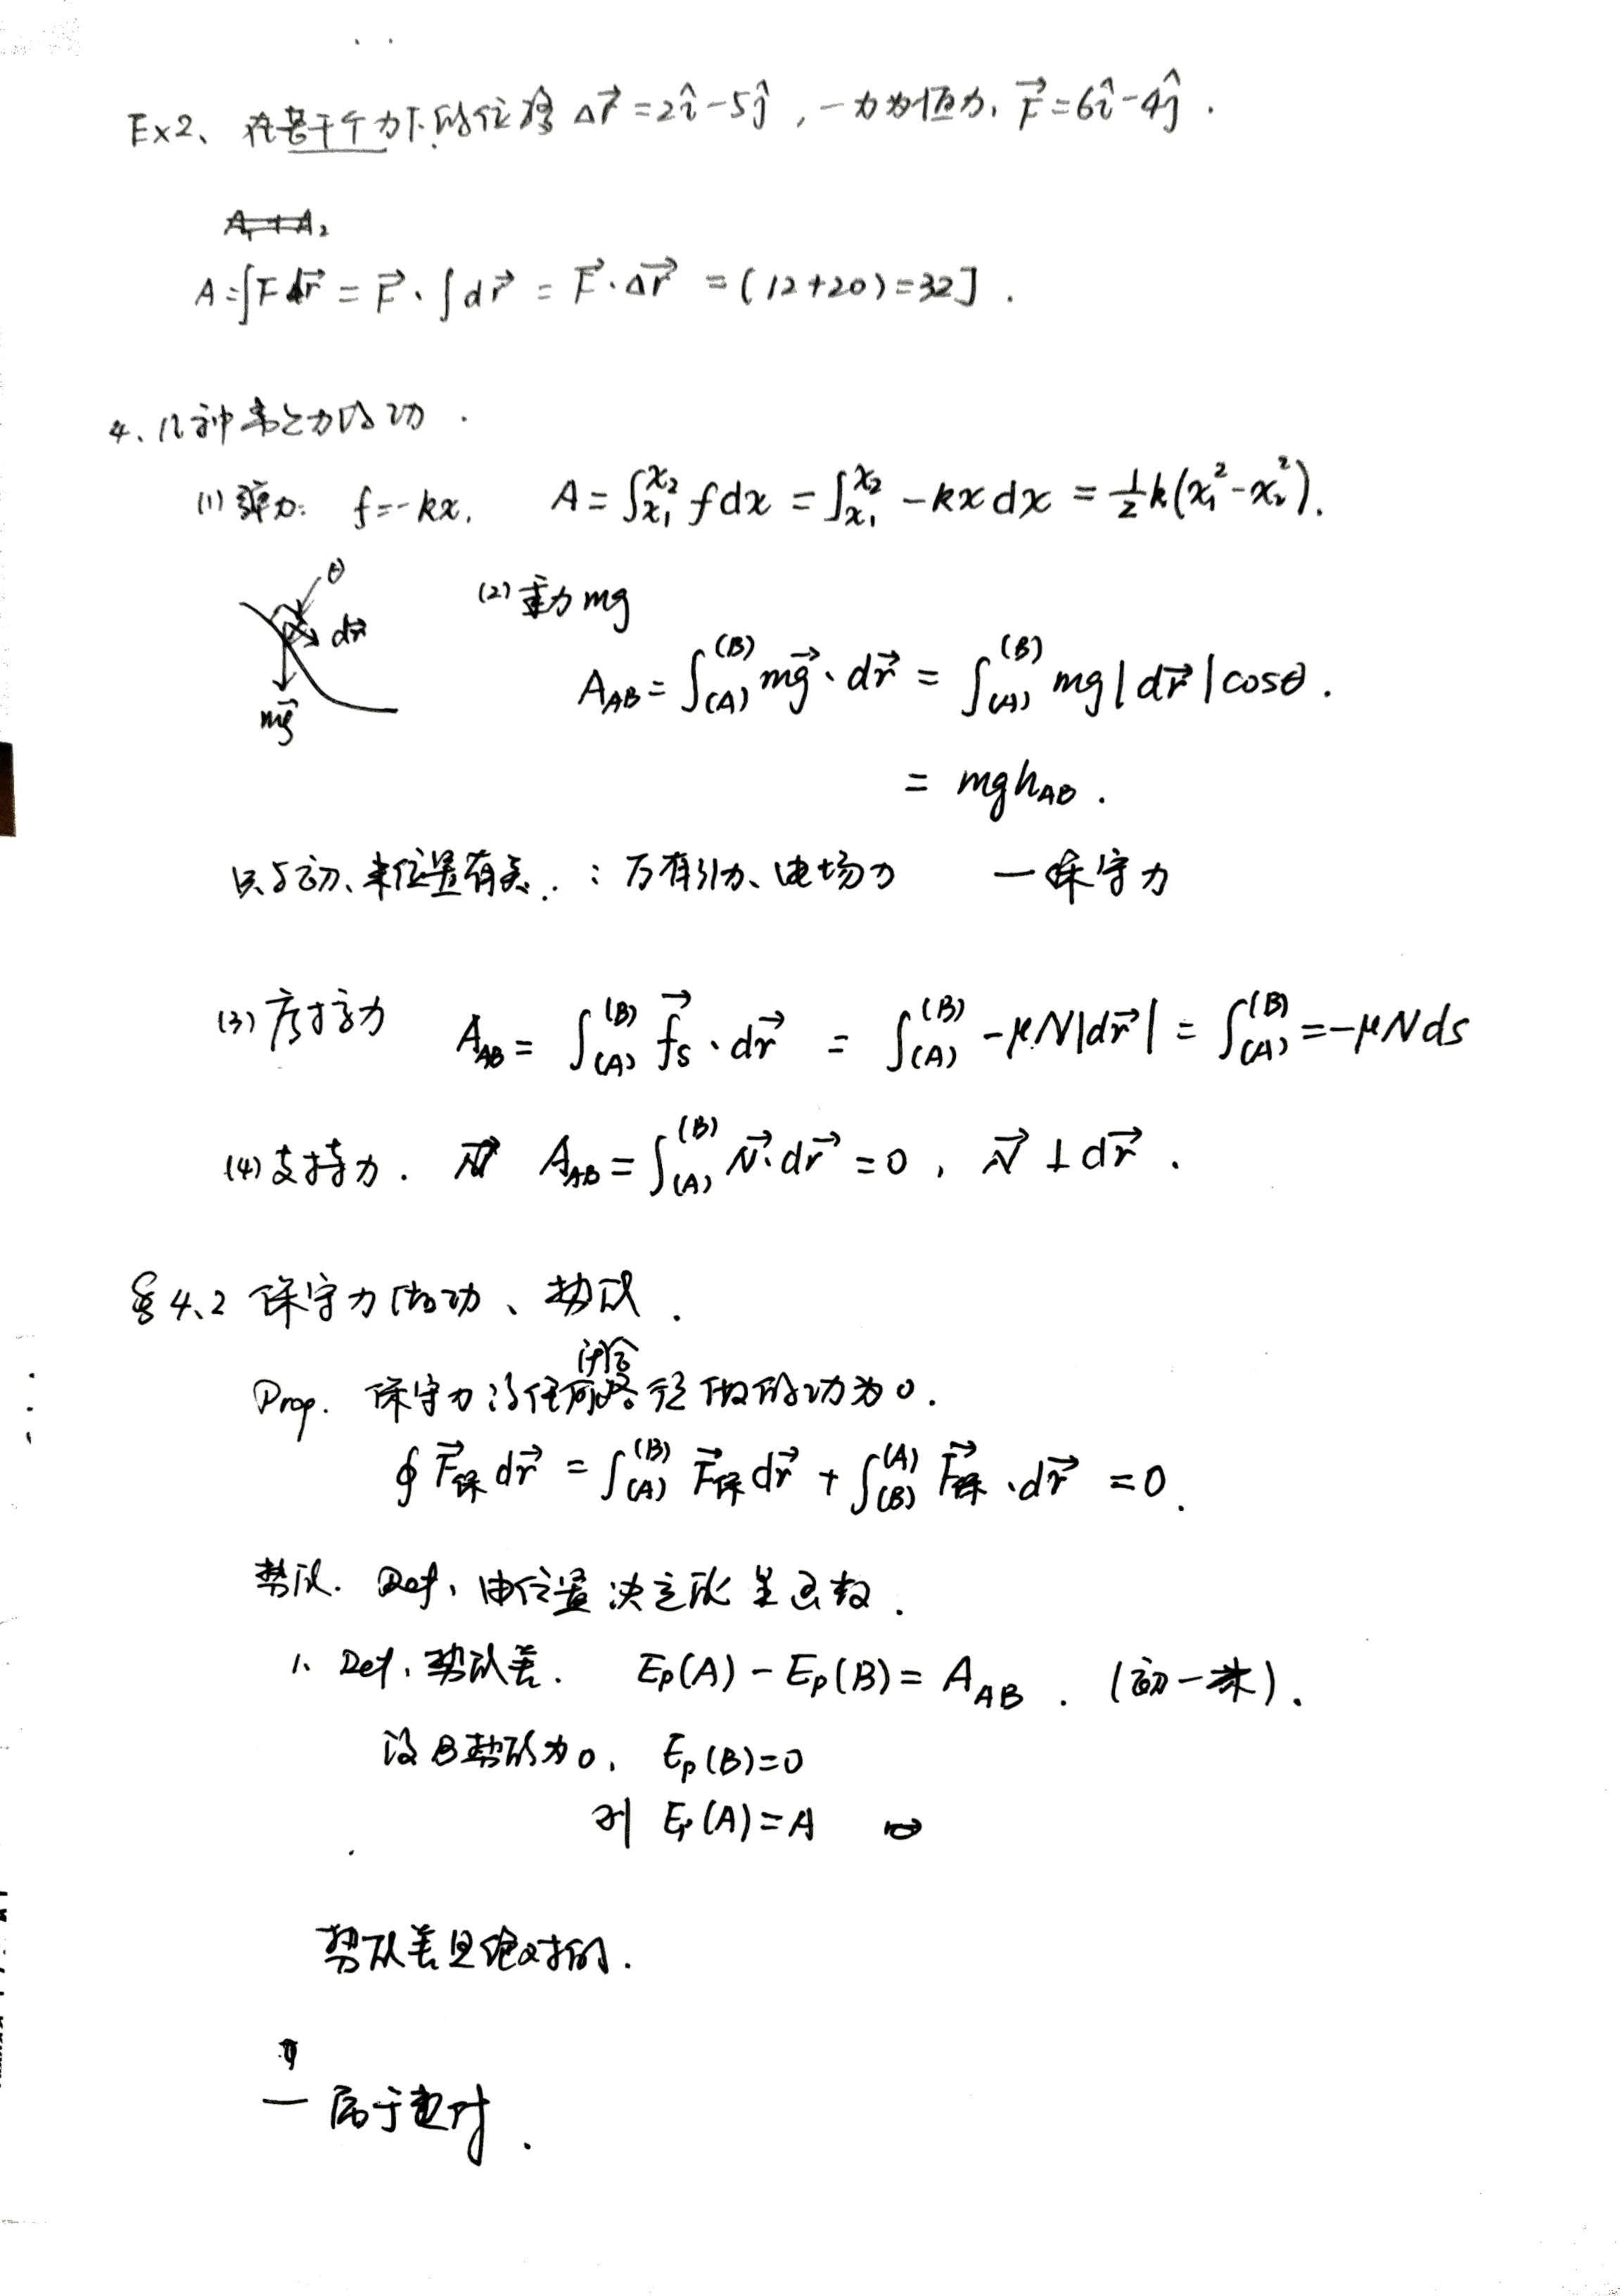 Ex2、在若干个力下的位移 Δr⃗ = 2î - 5ĵ , 一力为恒力, F⃗ = 6î - 4ĵ .
A = ∫F dr⃗ = F⃗ · ∫dr⃗ = F⃗ · Δr⃗ = (12+20) = 32J .
4、几种常见力的功 .
(1) 弹力: f = -kx, A = ∫_{x₁}^{x₂} f dx = ∫_{x₁}^{x₂} -kx dx = ½k(x₁² - x₂²).
θ
dr⃗
mg⃗
(2) 重力 mg
A_AB = ∫_(A)^(B) mg⃗ · dr⃗ = ∫_(A)^(B) mg|dr⃗|cosθ .
= mgh_AB .
只与初、末位置有关. : 万有引力、电场力 — 保守力
(3) 摩擦力 A_AB = ∫_(A)^(B) f⃗s · dr⃗ = ∫_(A)^(B) -μN|dr⃗| = ∫_(A)^(B) = -μN ds
(4) 支持力 . A_AB = ∫_(A)^(B) N⃗ · dr⃗ = 0 , N⃗ ⊥ dr⃗ .
§4.2 保守力做功、势能 .
Prop. 保守力沿任何闭合路径做的功为0.
∮ F⃗保 dr⃗ = ∫_(A)^(B) F⃗保 dr⃗ + ∫_(B)^(A) F⃗保 · dr⃗ = 0 .
势能. Def, 由位置决定能量函数 .
1、Def, 势能差. Ep(A) - Ep(B) = A_AB . (初-末) .
设B势能为0, Ep(B) = 0
则 Ep(A) = A
势能差是绝对的 .
— 属于